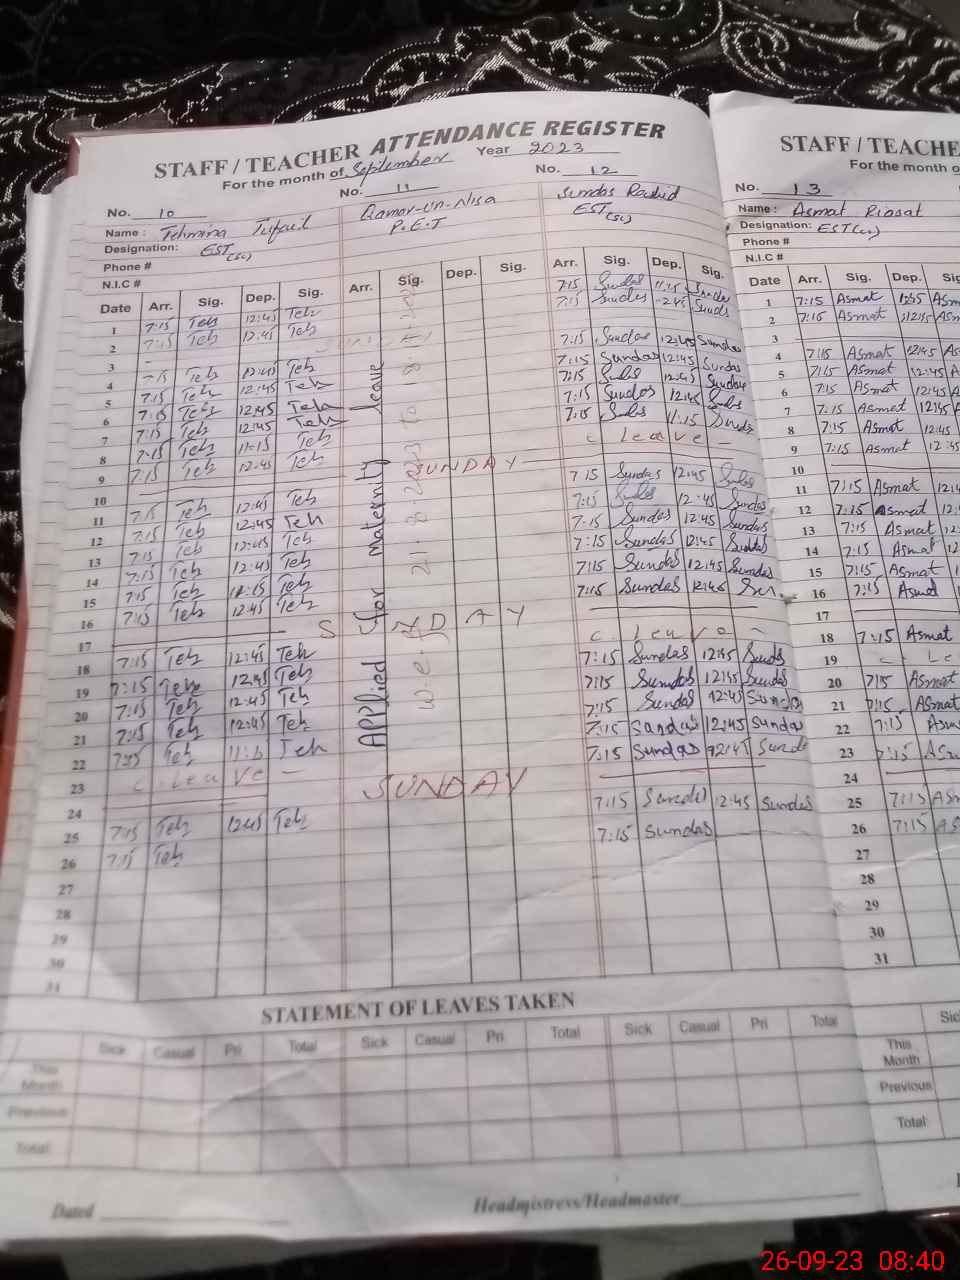 STAFF / TEACHER ATTENDANCE REGISTER
For the month of September Year 2023
No. 10
Name: Tehmina Tufail
Designation: EST (SC)
Phone #
N.I.C #
No. 11
Qamar-un-Nisa
P.E.T
No. 12
Sundas Rashid
EST (SC)
Date Arr. Sig. Dep. Sig. Arr. Sig. Dep. Sig. Arr. Sig. Dep. Sig.
1 7:15 Teh 12:45 Teh 7:15 Sundas 11:15 Sundas
2 7:15 Teh 12:45 Teh 7:15 Sundas
3
4 Teh 12:45 Teh 7:15 Sundas 12:45 Sundas
5 7:15 Teh 12:45 Teh 7:15 Sundas 12:45 Sundas
6 7:15 Teh 12:45 Teh 7:15 12:45 Sundas
7 7:15 Teh 12:45 Teh 7:15 Sundas 12:45
8 7:15 Teh 11:15 Teh 7:15 11:15
9 7:15 Teh 12:45 Teh C. Leave -
10 SUNDAY
11 7:15 Teh 12:45 Teh 7:15 Sundas 12:45
12 7:15 Teh 12:45 Teh 7:15 12:45 Sundas
13 7:15 Teh 12:45 Teh 7:15 Sundas 12:45 Sundas
14 7:15 Teh 12:45 Teh 7:15 Sundas 12:45 Sundas
15 7:15 Teh 11:15 Teh 7:15 Sundas 12:45 Sundas
16 7:15 Teh 12:45 Teh 7:15 Sundas 12:45
17 SUNDAY
18 7:15 Teh 12:45 Teh C. Leave -
19 7:15 Teh 12:45 Teh 7:15 Sundas 12:45
20 7:15 Teh 12:45 Teh 7:15 Sundas 12:45
21 7:15 Teh 12:45 Teh 7:15 Sundas 12:45 Sundas
22 7:15 Teh Teh 7:15 Sandas 12:45 Sundas
23 C. Leave - 7:15 Sundas 12:45
24 SUNDAY
25 7:15 Teh 12:45 Teh 7:15 12:45 Sundas
26 7:15 Teh 7:15 Sundas
27
28
29
30
31
Applied for maternity leave
w.e.f 21.8.2023 to 18
STATEMENT OF LEAVES TAKEN
Sick Casual Pri Total Sick Casual Pri Total Sick Casual Pri Total
This Month
Previous
Total:
Dated
Headmistress/Headmaster
STAFF / TEACHE
For the month of
No. 13
Name: Asmat Riasat
Designation: EST
Phone #
N.I.C #
Date Arr. Sig. Dep. Sig
1 7:15 Asmat Asm
2 7:15 Asmat Asm
3
4 7:15 Asmat 12:45 As
5 7:15 Asmat 12:45 A
6 7:15 Asmat 12:45 A
7 7:15 Asmat 12:45 A
8 7:15 Asmat 12:45
9 7:15 Asmat 12:45
10
11 7:15 Asmat
12 7:15 Asmat
13 7:15 Asmat
14 7:15 Asmat
15 7:15 Asmat
16 7:15
17
18 7:15 Asmat
19 C. Le
20 7:15 Asmat
21 7:15 Asmat
22 7:15 Asm
23 7:15
24
25 7:15 Asm
26 7:15 As
27
28
29
30
31
Sic
This Month
Previous
Total:
26-09-23 08:40